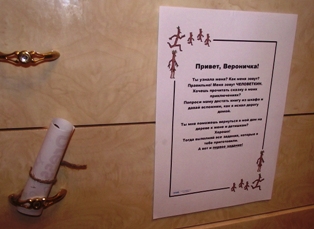 Привет, Вероничка!
Ты узнала меня? Как меня зовут?
Правильно! Меня зовут ЧЕЛОВЕТКИН.
Хочешь прочитать сказку о моих
приключениях?
Попроси маму достать книгу из шкафа и
давай вспомним, как я искал дорогу
домой.
Ты мне поможешь вернуться в мой дом на
дереве к жене и детишкам?
Хорошо!
Тогда выполняй все задания, которые я
тебе приготовил.
А вот и первое задание!